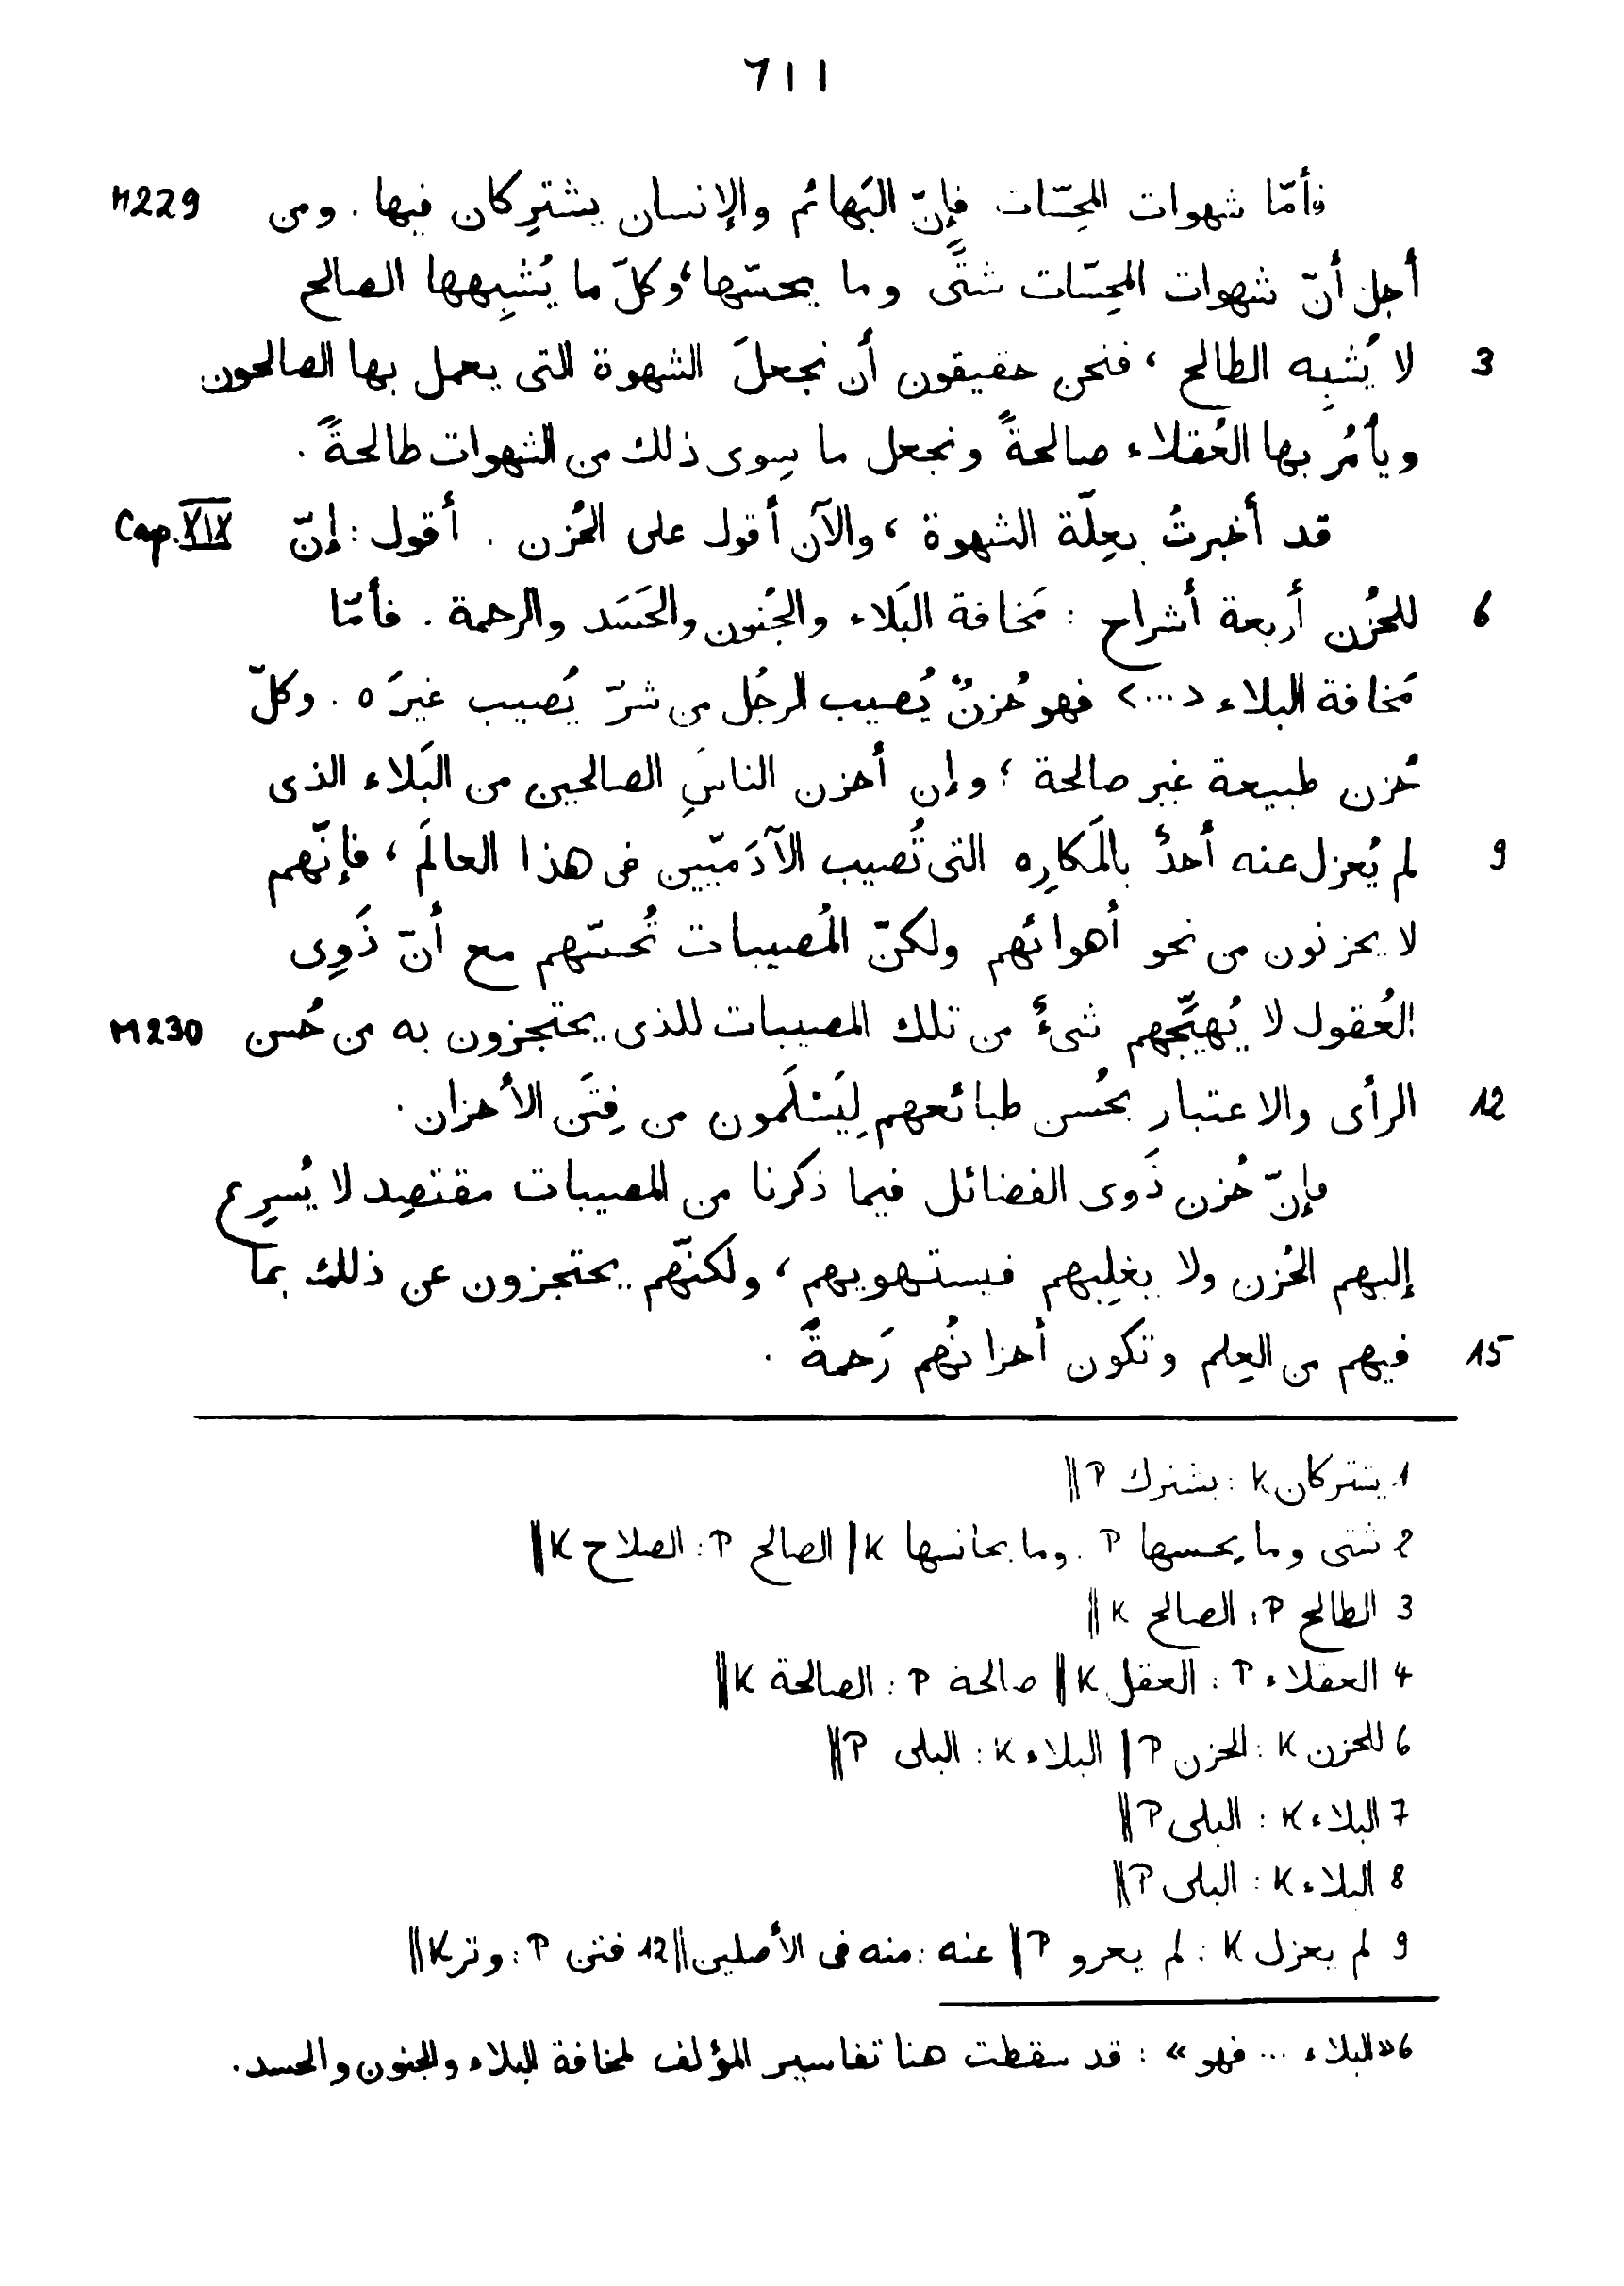 ٦١١
فأمّا شهوات المحِسّات فإنّ البَهائم والإنسان يشتَرِكان فيها . ومن M229
أجل أنّ شهوات المحِسّات شتَّى وما يحسّها، وكلّ ما يُشبِهها الصالح
3 لا يُشبِه الطالح ، فنحن حقيقون أن نجعلَ الشهوة التى يعمل بها الصالحون
ويأمُر بها العُقلاء صالحةً ونجعل ما سِوى ذلك من الشهوات طالحةً .
قد أخبرتُ بعِلّة الشهوة ، والآن أقول على الحُزن . أقول : إنّ Cap. XIX
6 للحُزن أربعة أشراح : مَخافة البَلاء والجُنون والحَسَد والرحمة . فأمّا
مَخافة البلاء <...> فهو حُزنٌ يُصيب الرجُل من شرّ يُصيب غيرَه . وكلّ
حُزن طبيعة غير صالحة ؛ وإن أحزن الناسَ الصالحين من البَلاء الذى
9 لم يُعزل عنه أحدٌ بالمَكارِه التى تُصيب الآدَميّين فى هذا العالَم ، فإنّهم
لا يحزنون من نحو أهوائهم ولكنّ المُصيبات تُحسّهم مع أنّ ذَوِى
العُقول لا يُهيّجهم شىءٌ من تلك المصيبات للذى يحتجزون به من حُسن M230
12 الرأى والاعتبار بحُسن طبائعهم لِيَسْلَمون من فِتَن الأحزان .
وإنّ حُزن ذَوى الفضائل فيما ذكرنا من المصيبات مقتصِد لا يُسرِع
إليهم الحُزن ولا يغلِبهم فيستهويهم ، ولكنّهم يحتجزون عن ذلك بما
15 فيهم من العِلم وتكون أحزانُهم رَحمةً .
1 يشتركان K : يشترك P ||
2 شتى وما يحسها P . وما يحانسها K | الصالح P : الصلاح K ||
3 الطالح P : الصالح K ||
4 العقلاء P : العقل K || صالحة P : الصالحة K ||
6 للحزن K : الحزن P | البلاء K : البلى P ||
7 البلاء K : البلى P ||
8 البلاء K : البلى P ||
9 لم يعزل K : لم يعرو P || عنه : منه فى الأصلين || 12 فتن P : وتر K ||
6 «البلاء ... فهو» : قد سقطت هنا تفاسير المؤلف لمخافة البلاء والجنون والحسد .